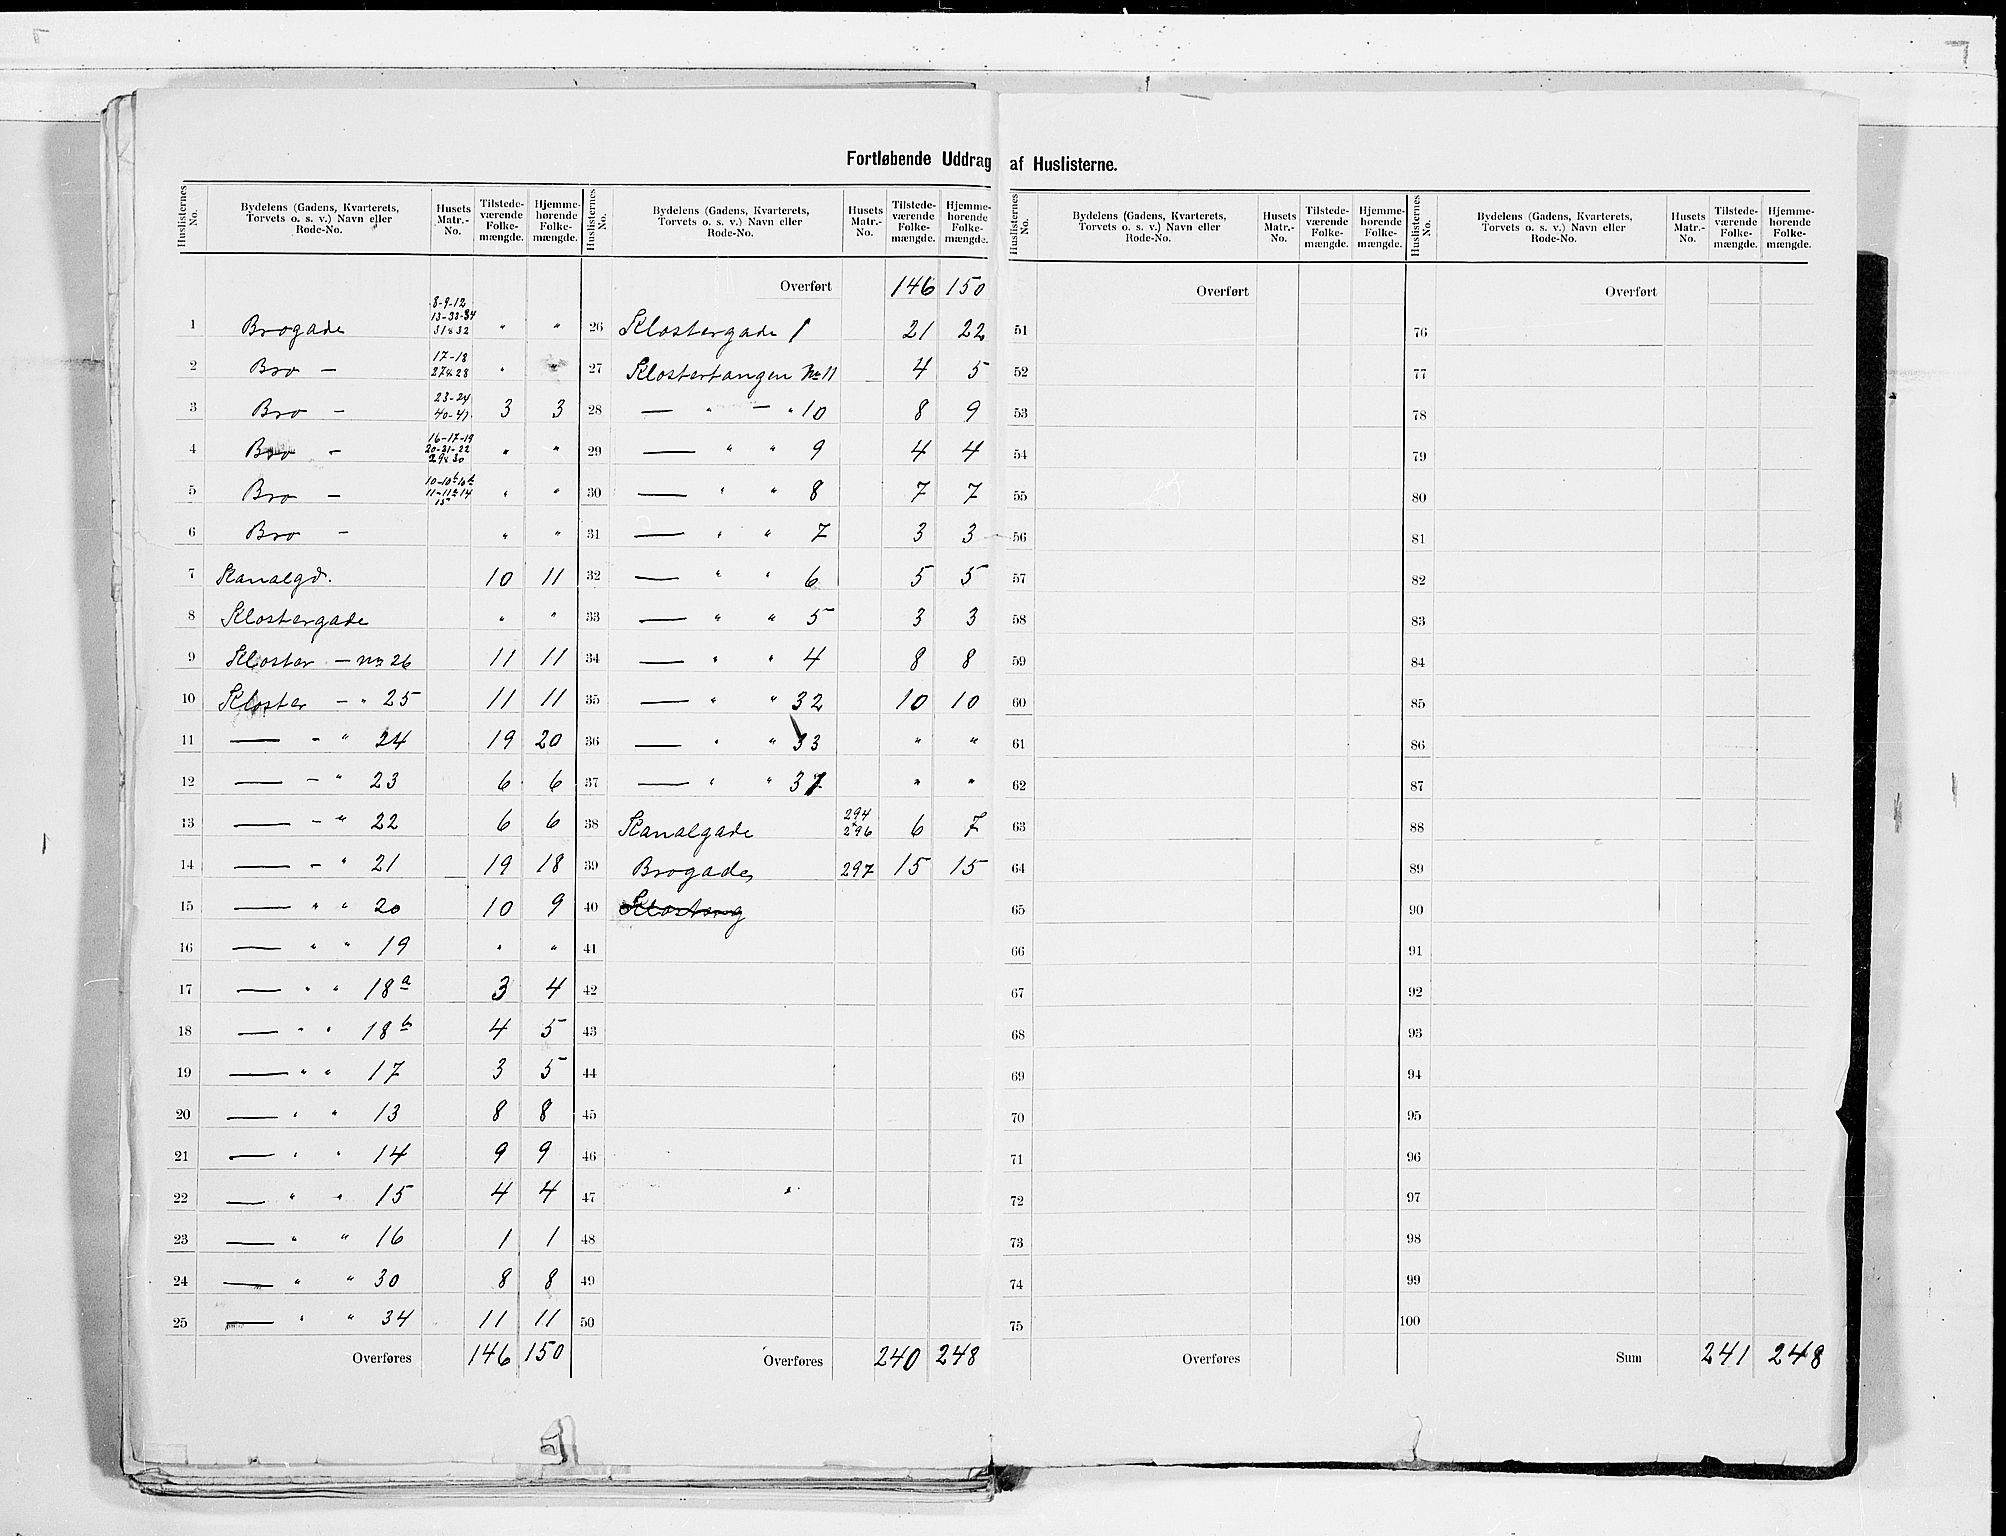 Fortløbende Uddrag af Huslisterne.
Huslisternes No. Bydelens (Gadens, Kvarterets, Torvets o. s. v.) Navn eller Rode-No. Husets Matr.-No. Tilstedeværende Folkemængde. Hjemmehørende Folkemængde.
1 Brogade 8-9-12 13-33-34 31&32 " "
2 Bro — 17-18 27&28 " "
3 Bro — 23-24 40-41 3 3
4 Bro — 16-17-19 20-21-22 29&30 " "
5 Bro — " "
6 Bro — " "
7 Kanalgd. 10 11
8 Klostergade " "
9 Kloster — No 26 11 11
10 Kloster — " 25 11 11
11 — - " 24 19 20
12 — - " 23 6 6
13 — - " 22 6 6
14 — - " 21 19 18
15 — " " 20 10 9
16 — " " 19 " "
17 — " " 18a 3 4
18 — " " 18b 4 5
19 — " " 17 3 5
20 — " " 13 8 8
21 — " " 14 9 9
22 — " " 15 4 4
23 — " " 16 1 1
24 — " " 30 8 8
25 — " " 34 11 11
Overføres 146 150
Huslisternes No. Bydelens (Gadens, Kvarterets, Torvets o. s. v.) Navn eller Rode-No. Husets Matr.-No. Tilstedeværende Folkemængde. Hjemmehørende Folkemængde.
Overført 146 150
26 Klostergade 1 21 22
27 Klostertangen No 11 4 5
28 — " — " 10 8 9
29 — " " 9 4 4
30 — " " 8 7 7
31 — " " 7 3 3
32 — " " 6 5 5
33 — " " 5 3 3
34 — " " 4 8 8
35 — " " 32 10 10
36 — " " 33 " "
37 — " " 37 " "
38 Kanalgade 294 & 296 6 7
39 Brogade, 297 15 15
40 Klosterg
41
42
43
44
45
46
47
48
49
50
Overføres 240 248
Huslisternes No. Bydelens (Gadens, Kvarterets, Torvets o. s. v.) Navn eller Rode-No. Husets Matr.-No. Tilstedeværende Folkemængde. Hjemmehørende Folkemængde.
Overført
51
52
53
54
55
56
57
58
59
60
61
62
63
64
65
66
67
68
69
70
71
72
73
74
75
Overføres
Huslisternes No. Bydelens (Gadens, Kvarterets, Torvets o. s. v.) Navn eller Rode-No. Husets Matr.-No. Tilstedeværende Folkemængde. Hjemmehørende Folkemængde.
Overført
76
77
78
79
80
81
82
83
84
85
86
87
88
89
90
91
92
93
94
95
96
97
98
99
100
Sum 241 248